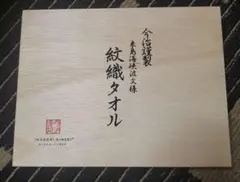 今治謹製
来島海峡波文様
紋織タオル